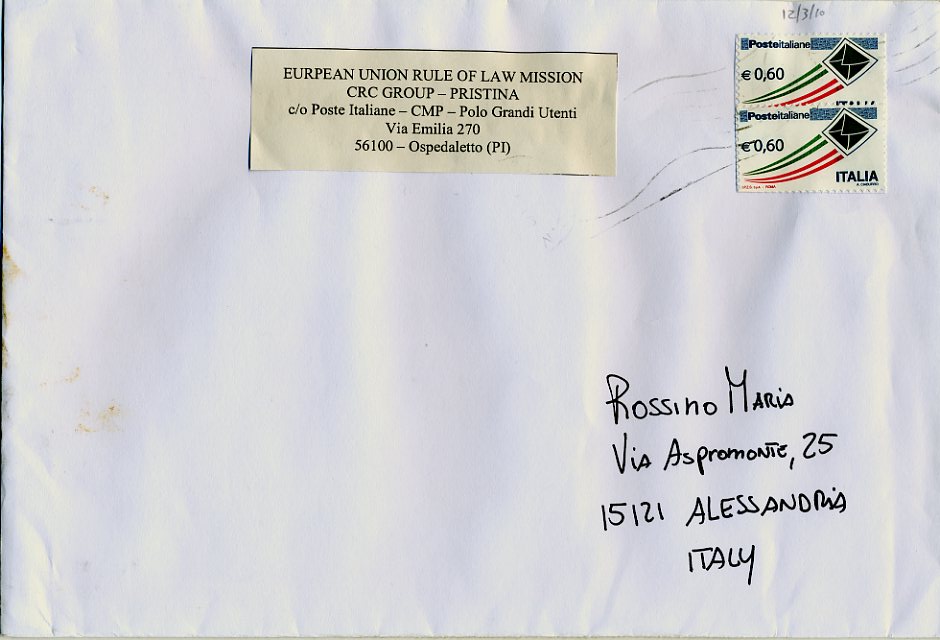 12/3/10
Posteitaliane
€ 0,60
Posteitaliane
€ 0,60
ITALIA
EURPEAN UNION RULE OF LAW MISSION
CRC GROUP – PRISTINA
c/o Poste Italiane – CMP – Polo Grandi Utenti
Via Emilia 270
56100 – Ospedaletto (PI)
Rossino Maria
Via Aspromonte, 25
15121 ALESSANDRIA
ITALY